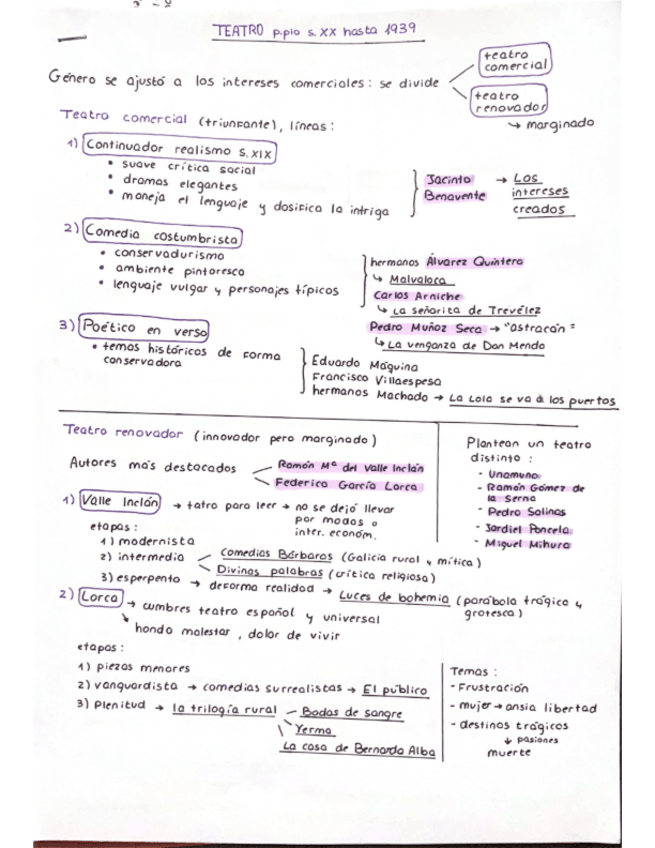 TEATRO p.pio s. XX hasta 1939
Género se ajustó a los intereses comerciales: se divide
teatro comercial
teatro renovador
→ marginado
Teatro comercial (triunfante), líneas:
1) Continuador realismo s. XIX
• suave crítica social
• dramas elegantes
• maneja el lenguaje y dosifica la intriga
Jacinto Benavente → Los intereses creados
2) Comedia costumbrista
• conservadurismo
• ambiente pintoresco
• lenguaje vulgar y personajes típicos
hermanos Álvarez Quintero
↳ Malvaloca
Carlos Arniche
↳ La señorita de Trevélez
Pedro Muñoz Seca → "astracán"
↳ La venganza de Don Mendo
3) Poético en verso
• temas históricos de forma conservadora
Eduardo Maquina
Francisco Villaespesa
hermanos Machado → La Lola se va a los puertos
Teatro renovador (innovador pero marginado)
Autores más destacados
Ramón Mª del Valle Inclán
Federico García Lorca
1) Valle Inclán → tatro para leer → no se dejó llevar
por modas o
inter. económ.
etapas:
1) modernista
2) intermedio
Comedias Bárbaras (Galicia rural y mítica)
Divinas palabras (crítica religiosa)
3) esperpento → deforma realidad → Luces de bohemia (parábola trágica y
grotesca)
Plantean un teatro
distinto:
- Unamuno
- Ramón Gómez de
la Serna
- Pedro Salinas
- Jardiel Poncela
- Miguel Mihura
2) Lorca → cumbres teatro español y universal
↘ hondo malestar, dolor de vivir
etapas:
1) piezas menores
2) vanguardista → comedias surrealistas → El público
3) plenitud → la trilogía rural
Bodas de sangre
Yerma
La casa de Bernarda Alba
Temas:
- Frustración
- mujer → ansia libertad
- destinos trágicos
↓ pasiones
muerte